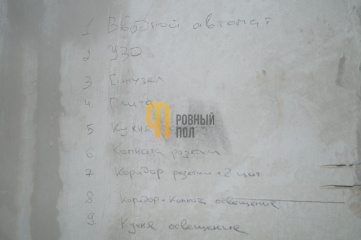 1 Вводной автомат
2 УЗО
3 Санузел
4 Плита
РОВНЫЙ
ПОЛ
5 Кухня
6 Комната розетки
7 Коридор розетки + 2
8 Коридор + Комната освещение
9 Кухня освещение